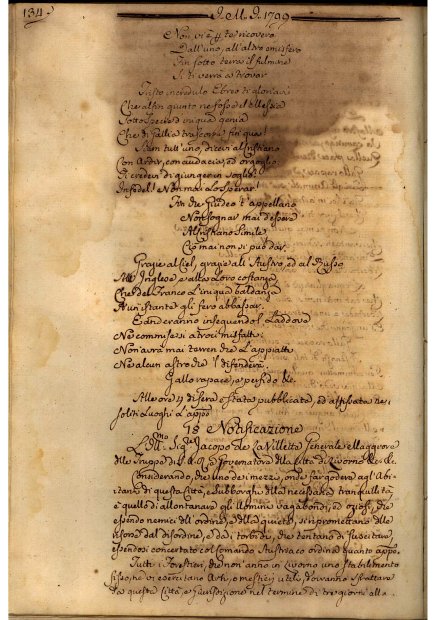 134.
I. M. I. 1799
Non vi è pp te ricovero
Dall'uno, all'altro emisfero
Fin sotto terra il fulmine
Ti verrà a trovar
Tristo incredulo Ebreo di gloria
Che alfin giunto ne fosse
Sotto specie d'iniqua genia
Che di Gallia trascorse fin qua!
Sien tutt'uno, dicevi al Cristiano
Con Ardir, con audacia, ed orgoglio
Ti credevi di giungere in soglio!
Infedel! Non mai lo sperar!
Fin che Giudeo t'appellano
Non sognar mai d'essere
Al Cristiano Simile
Ciò mai non si può dar.
Grazie al Ciel, grazie all'Austro, ed al Russo
All'Inglese e alla loro costanza
Che del Franco l'iniqua baldanza
A un istante gli fero abbassar.
Ed anderanno inseguendol laddove
Ne commise i atroci misfatti
Non avrà mai terren che l'appiatti
Ne alcun astro che 'l difenderà.
Gallo rapace, e perfido &c.
Alle ore 23 di sera è stata pubblicata, ed affissata ne'
soliti Luoghi l'appo
Notificazione
Ill.mo Sig.re Jacopo de La Villetta Generale Maggiore
delle Truppe di S. A. R. e Governatore della Città di Livorno &c. &c.
Considerando, che uno dei mezzi, onde far godere agl'Abi-
tanti di questa Città, e Subborghi della necessaria tranquillità
è quello di allontanare gli Uomini vagabondi, ed oziosi, che
essendo nemici dell'ordine, e della quiete, si impromettono delle
risorse dal disordine, e dai torbidi, che tentano di suscitare
essendosi concertato col Comando Austriaco ordina quanto appo.
Tutti i Forestieri, che non anno in Livorno uno stabilimento
fisso, ne vi esercitano Arti, o mestieri utili, dovranno sfrattare
da questa Città, e Giurisdizione nel termine di tre giorni alla